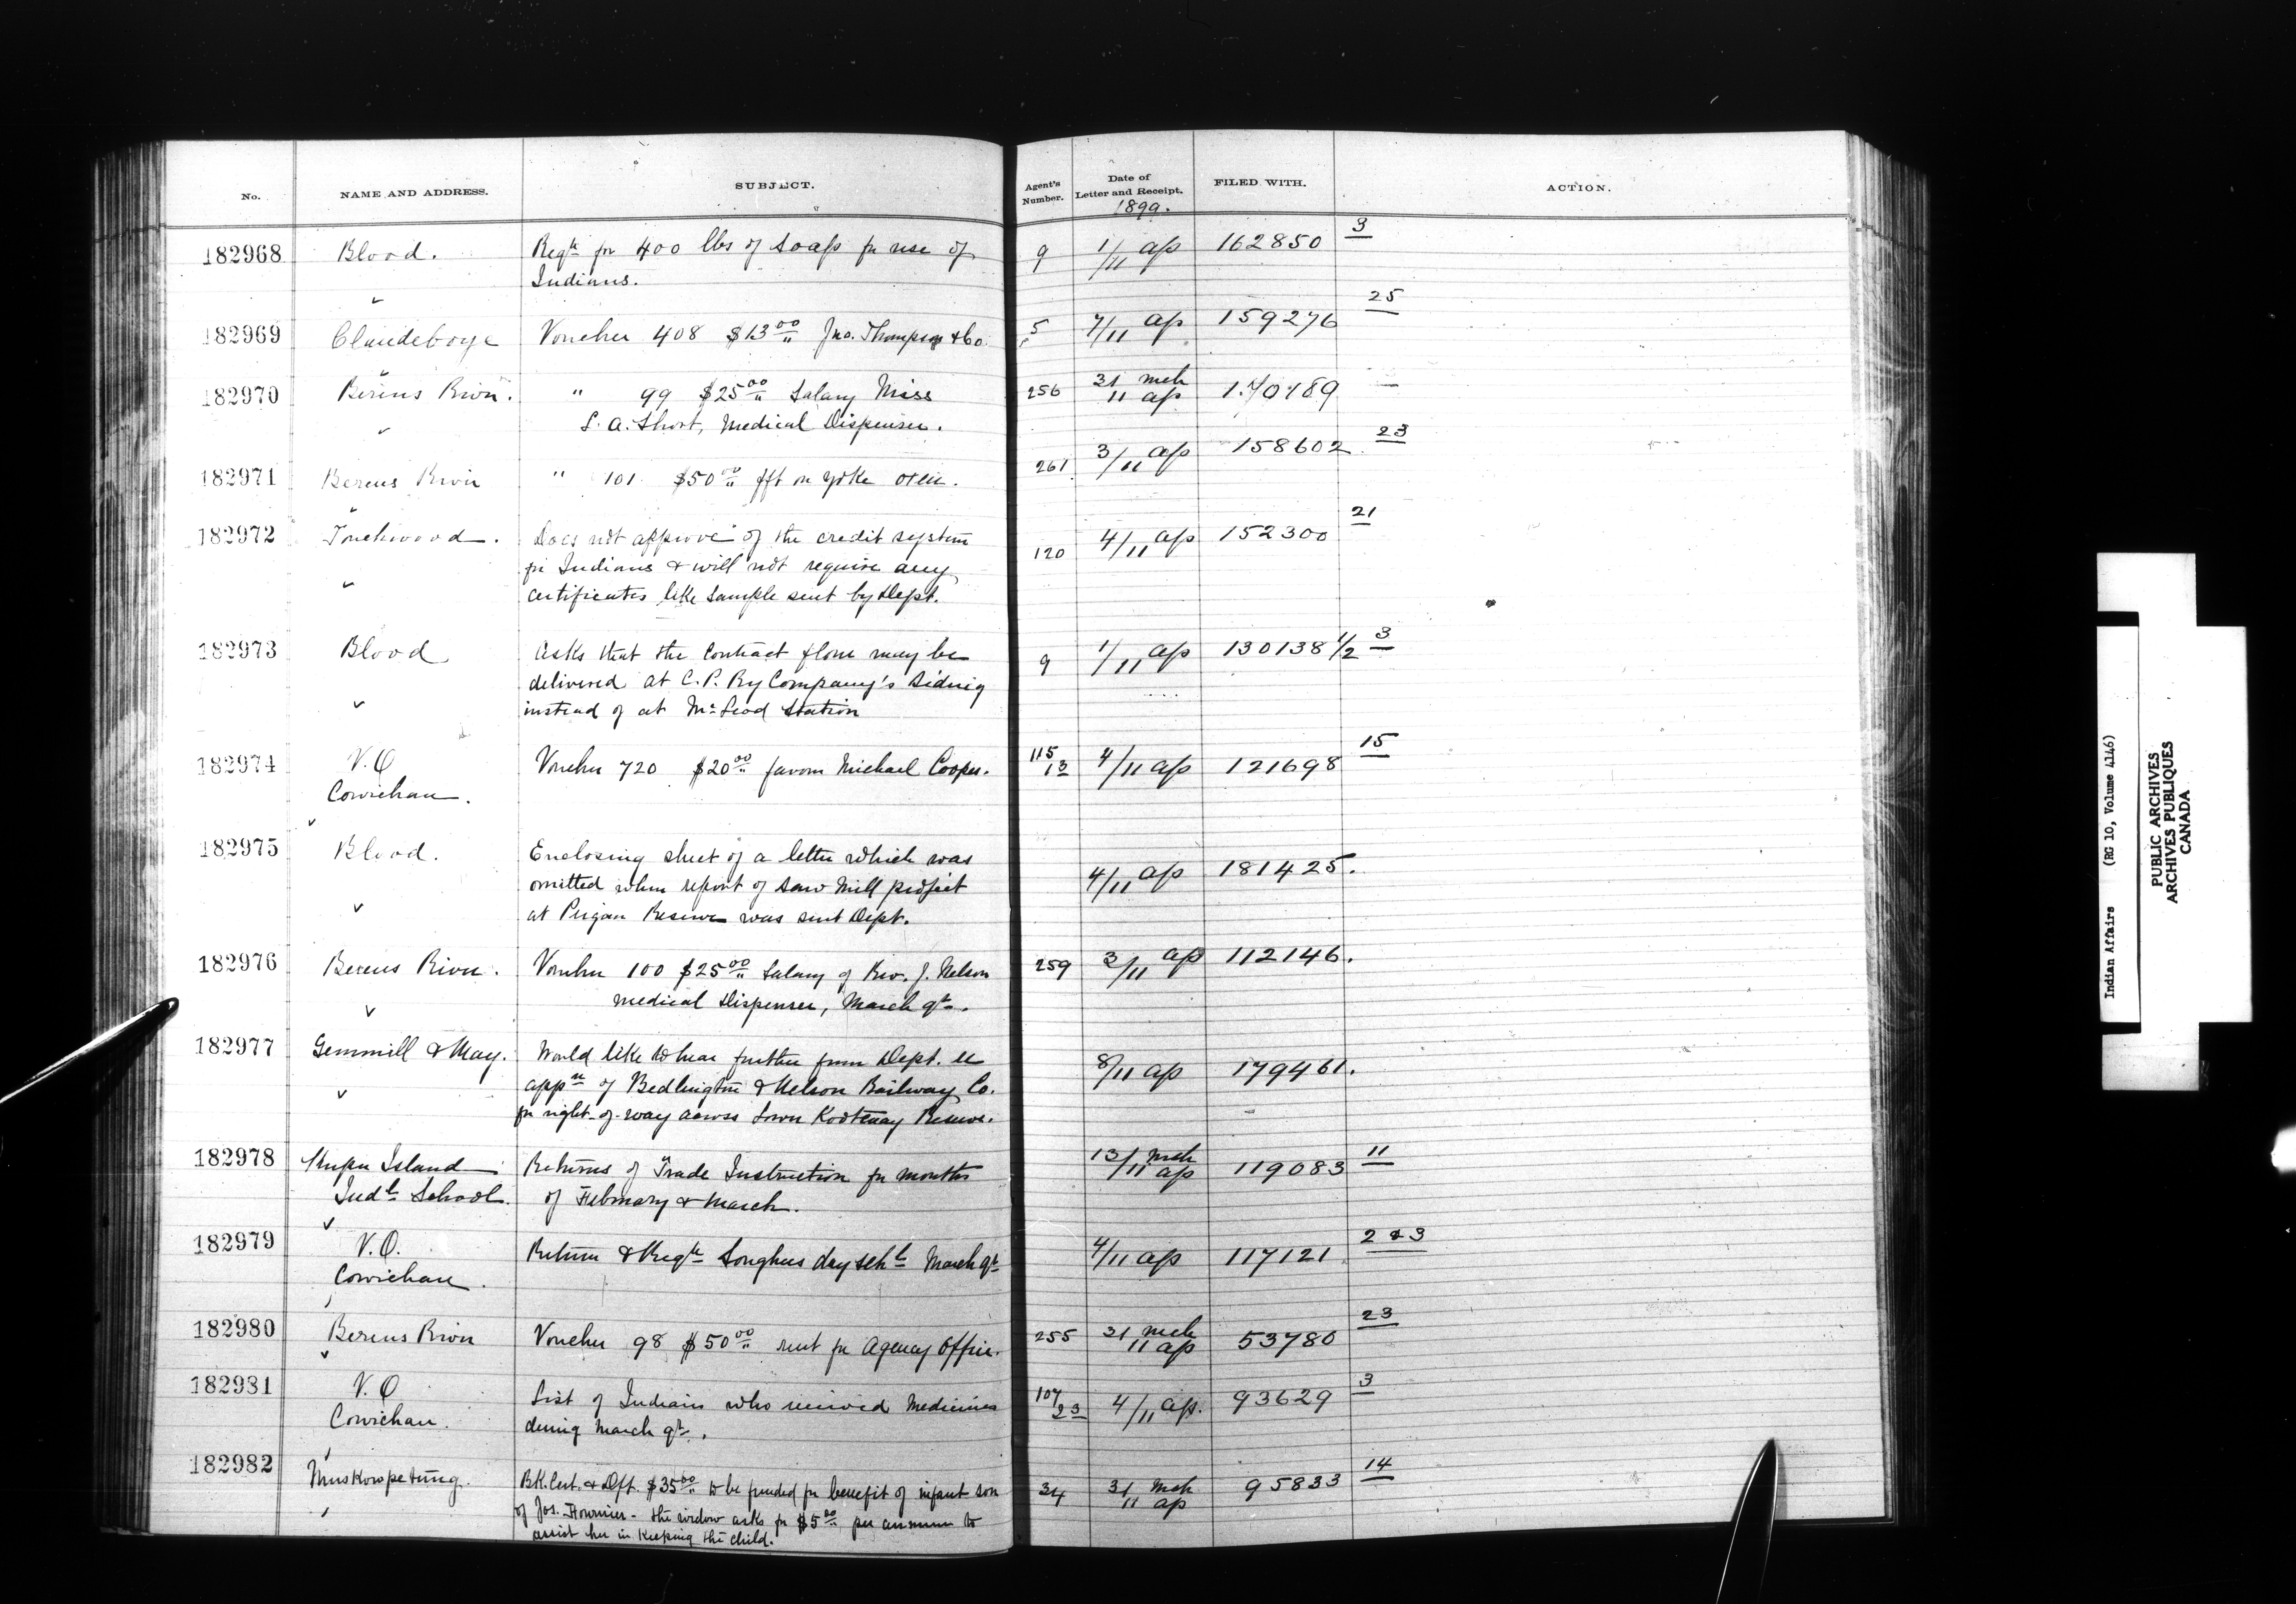 No. NAME AND ADDRESS. SUBJECT. Agent's Number. Date of Letter and Receipt. FILED WITH. ACTION.
1899.
182968 Blood. Reqn for 400 lbs of Soap for use of 9 1/11 ap 162850 3
Indians.
182969 Clandeboye Voucher 408 $13.00 Jno. Thompson & Co. 5 7/11 ap 159276 25
182970 Berens River. " 99 $25.00 Salary Miss 256 31 mch 11 ap 170189 —
S. A. Short, Medical Dispenser.
182971 Berens River " 101 $50.00 on yoke oxen. 261 3/11 ap 158602 23
182972 Touchwood. Does not approve of the credit system 120 4/11 ap 152300 21
for Indians & will not require any
certificates like sample sent by Dept.
182973 Blood Asks that the Contract flour may be 9 1/11 ap 130138 1/2 3
delivered at C. P. Ry Company's Siding
instead of at McLeod Station
182974 V.O Voucher 720 $20.00 favour Michael Cooper. 115/13 4/11 ap 121698 15
Cowichan.
182975 Blood. Enclosing sheet of a letter which was 4/11 ap 181425.
omitted when report of Saw Mill project
at Peigan Reserve was sent Dept.
182976 Berens River. Voucher 100 $25.00 Salary of Rev. J. Nelson 259 3/11 ap 112146.
medical Dispenser, March qr.
182977 Gemmill & May. Would like to hear further from Dept. re 8/11 ap 179461.
appn of Bedlington & Nelson Railway Co.
for right-of-way across Lower Kootenay Reserve.
182978 Kuper Island Returns of Trade Instruction for months 13/ mch 11 ap 119083 11
Indl School. of February & March.
182979 V.O. Return & Reqn Songhees day schl March qr 4/11 ap 117121 2 & 3
Cowichan.
182980 Berens River Voucher 98 $50.00 rent for Agency Office. 255 31 mch 11 ap 53780 23
182981 V.O List of Indians who received Medicines 107/23 4/11 ap. 93629 3
Cowichan. during March qr.
182982 Muskowpetung. BK. Cert. & Dft. $35.00 to be funded for benefit of infant son 34 31 mch 11 ap 95833 14
of Jos. Fournier - the widow asks for $5.00 per annum to
assist her in keeping the child.
Indian Affairs (RG 10, Volume 4146)
PUBLIC ARCHIVES
ARCHIVES PUBLIQUES
CANADA